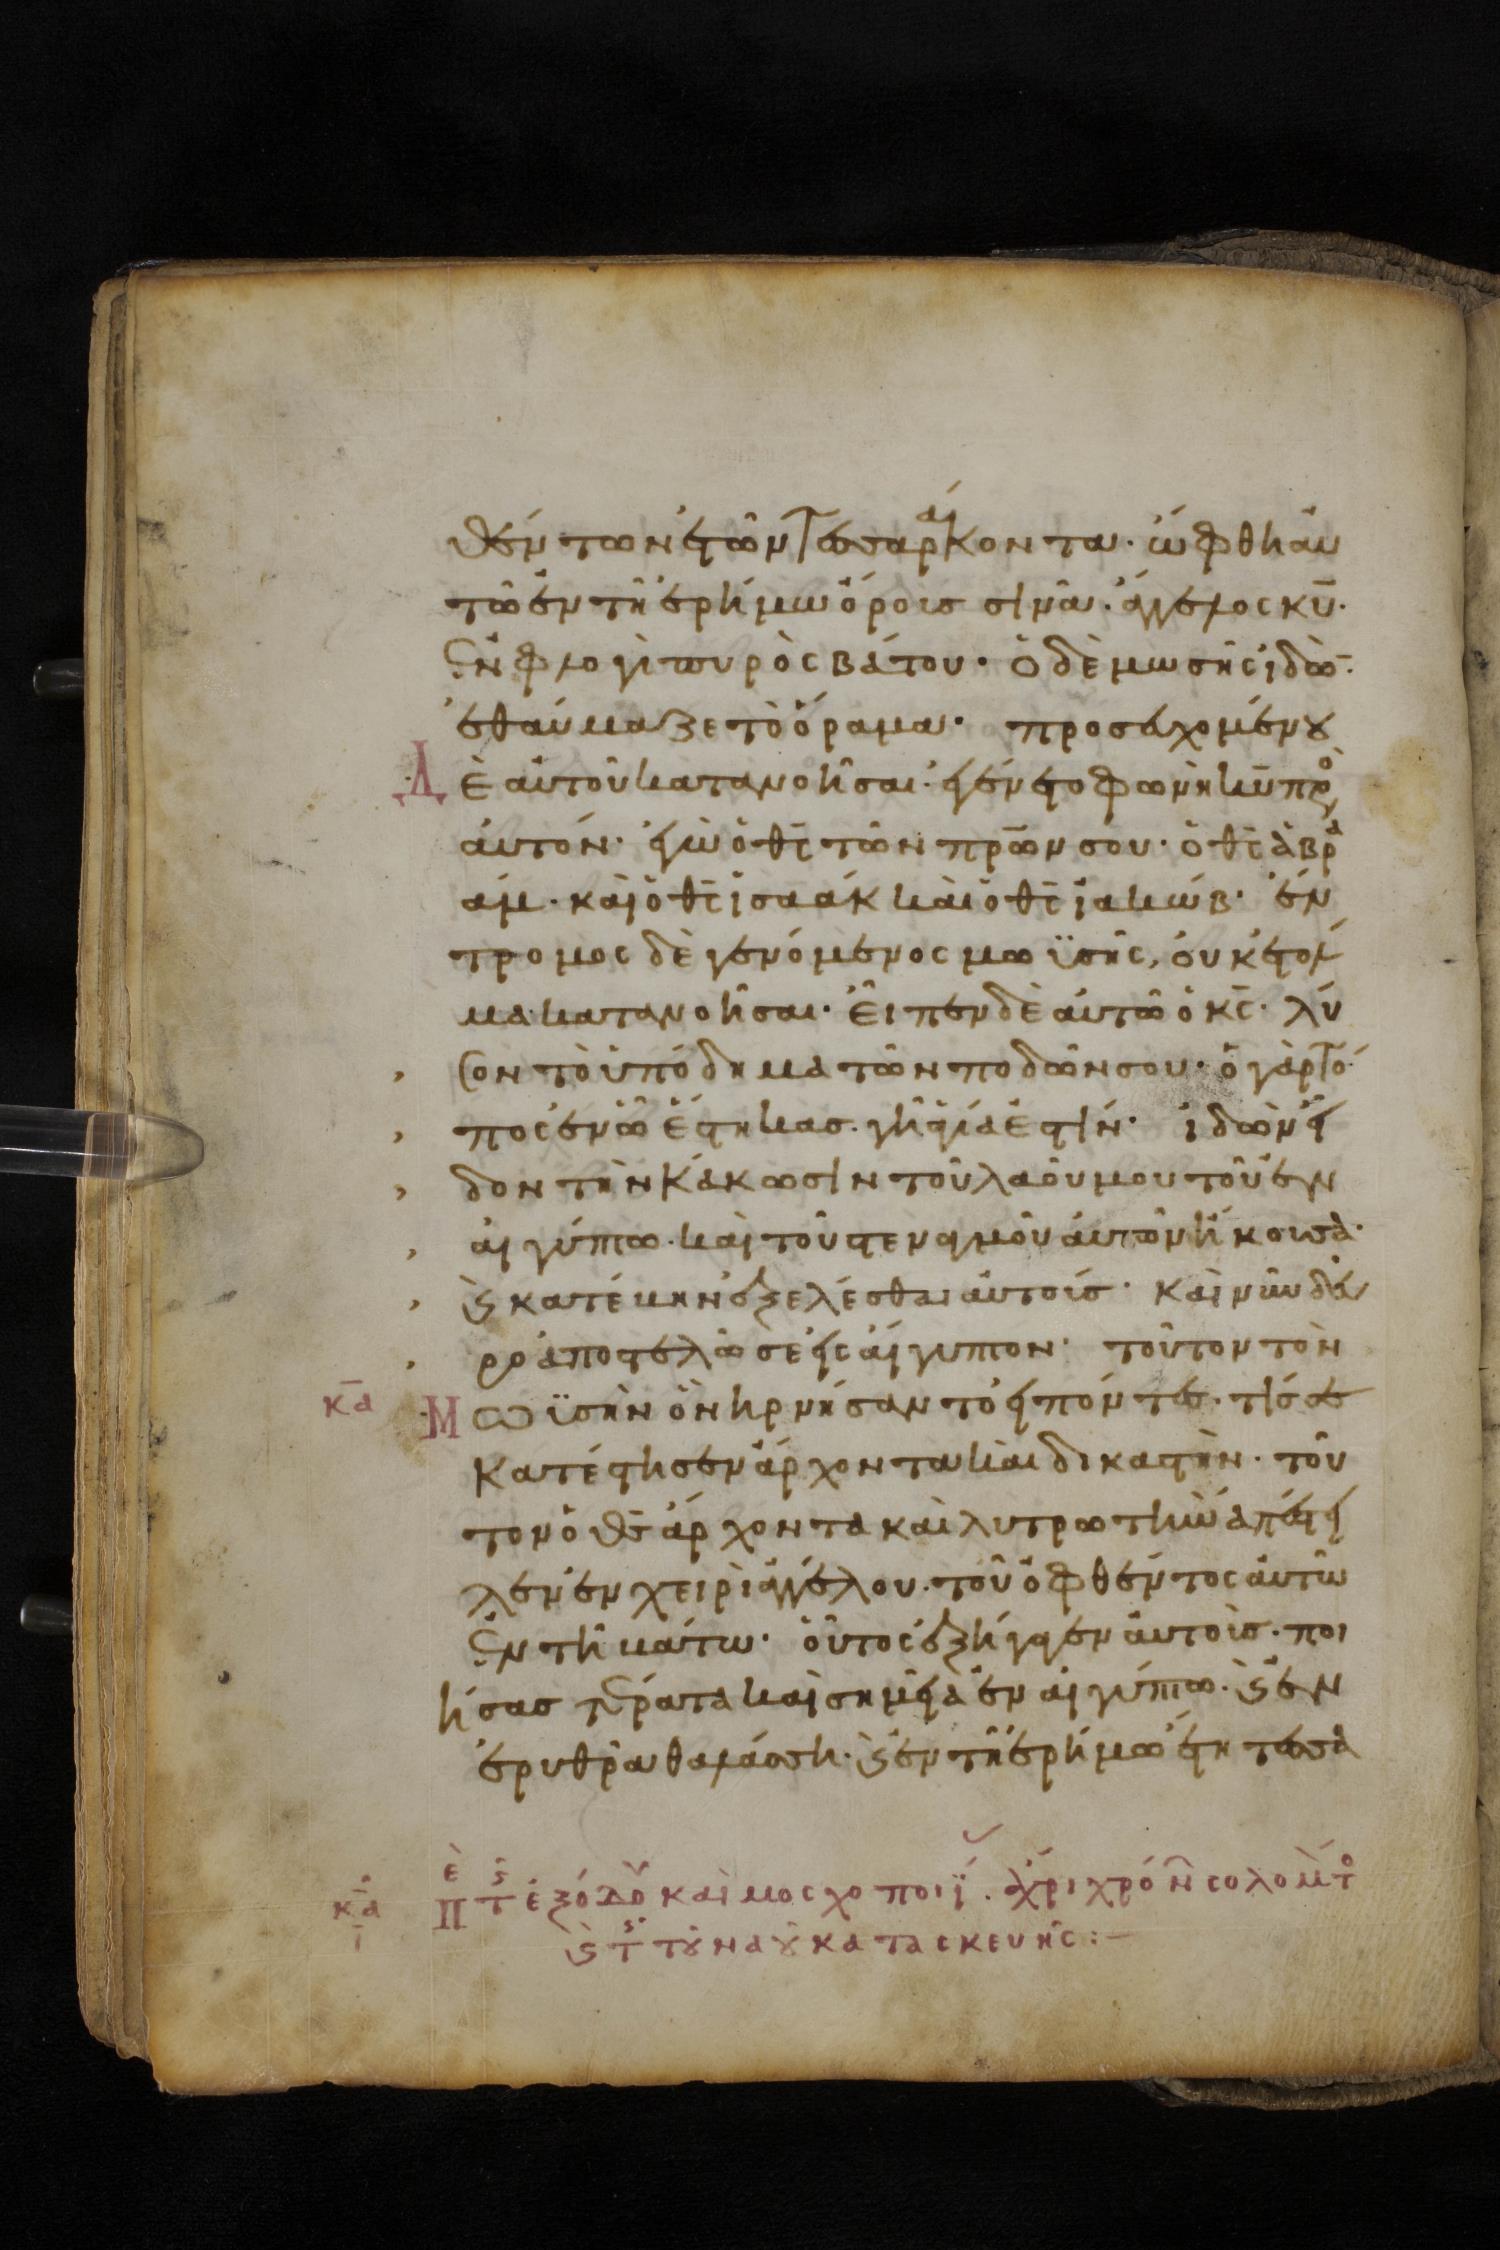 θέντων ἐτῶν τεσσαράκοντα· ὤφθη ἀυ
τῶ ἐν τῆ ἐρήμω ὄροισ σινᾶ· ἄγγελος κ̅υ̅·
ἐν φλογὶ πυρὸς βάτου· ὁ δὲ μωσῆς ἰδὼ̅·
ἐθαύμαζε τὸ ὅραμα· προσερχομένȣ
Δὲ ἀυτοῦ κατανοῆσαι· ἐγένετο φωνὴ κ̅υ̅ πρὸ
ἀυτόν· ἐγὼ ὁ θ̅ς̅ τῶν πρ̅ων σου· ὁ θ̅ς̅ ἀβρα
άμ· καὶ ὁ θ̅ς̅ ἰσαάκ καὶ ὁ θ̅ς̅ ἰακώβ· ἔν
τρομος δὲ γενόμενος μωϋσῆς, ὀυκ ἐτόλ
μα κατανοῆσαι· Εἶπεν δὲ ἀυτῶ ὁ κ̅ς̅· λύ
σον τὸ ὑπόδημα τῶν ποδῶν σου· ὁ γὰρ τό
πος ἐν ὧ ἕστηκασ· γῆ ἁγία ἐστίν· ἰδὼν εἶ
δον τὴν κάκωσιν τοῦ λαοῦ μου τοῦ ἐν
αἰγύπτω· καὶ τοῦ στεναγμοῦ ἀυτῶν ἤκουσα·
ϗ κατέβην ἐξελέσθαι ἀυτούσ· καὶ νῦν δεῦ
ρο ἀποστελῶ σε εἰς αἴγυπτον· τοῦτον τὸν
κ̅α̅ Μωϋσὴν ὃν ἠρνήσαντο εἰπόντεσ· τίσ σε
κατέστησεν ἄρχοντα καὶ δικαστὴν· τοῦ
τον ὁ θ̅ς̅ ἄρχοντα καὶ λυτρωτὴν ἀπέστει
λεν ἐν χειρὶ ἀγγέλου· τοῦ ὀφθέντος ἀυτῶ
ἐν τῆ βάτω· ὁῦτος ἐξήγαγεν ἀυτοὺσ· ποι
ήσας τέρατα καὶ σημεῖα ἐν αἰγύπτω· ϗ ἐν
ἐρυθρᾶ θαλάσση· ϗ ἐν τῆ ἐρήμω ἔτη τεσσα
κ̅α̅ Πε τς ἐξόδου καὶ μοσχοποιΐ· ἄχρι χρόν̑ σολομῶτο
ϗ τς τȣ͂ ναȣ͂ κατασκευῆς:—